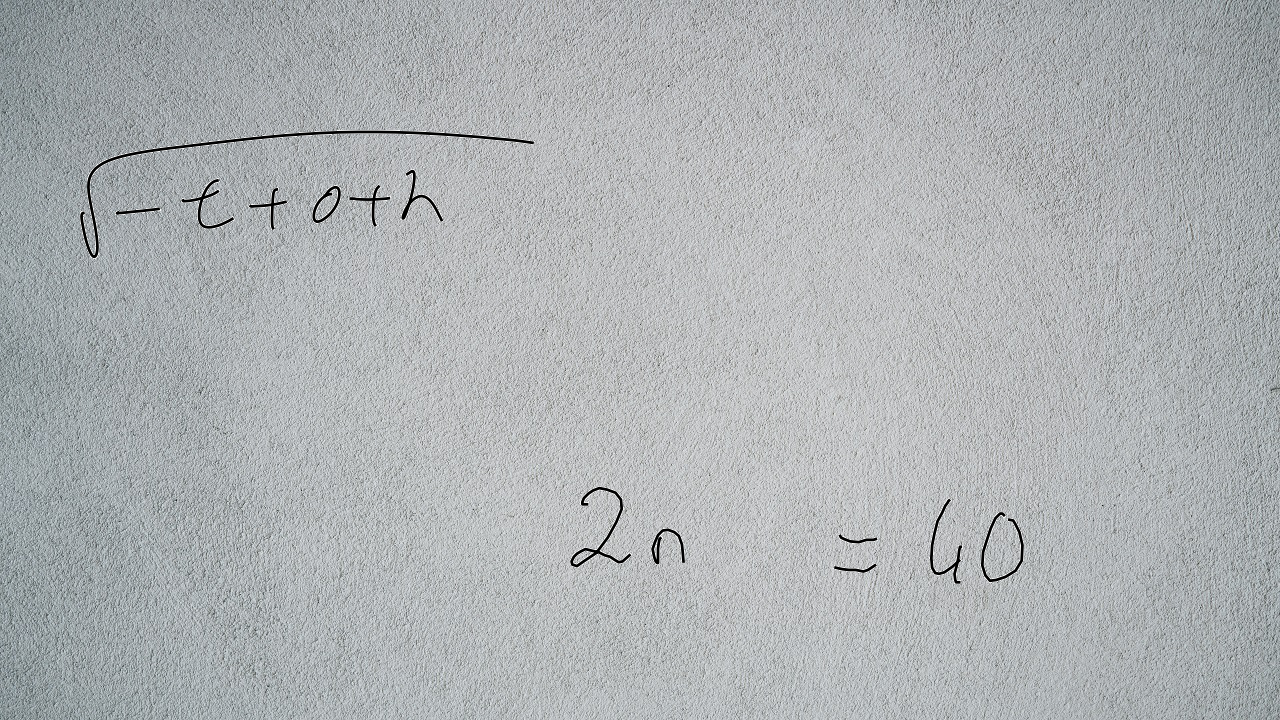 √(-t+o+h)
2n = 40